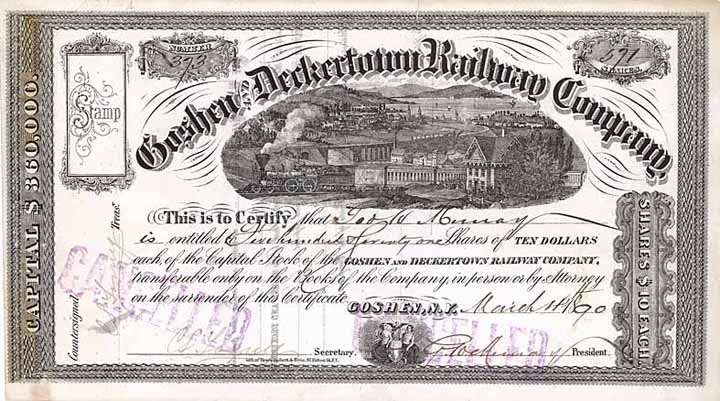 NUMBER
373
571
SHARES
Stamp
Goshen AND Deckertown Railway Company
CAPITAL $360,000.
SHARES $10 EACH
This is to Certify that Geo W Murray
is entitled to Five hundred Seventy one Shares of TEN DOLLARS
each, of the Capital Stock of the GOSHEN AND DECKERTOWN RAILWAY COMPANY,
transferable only on the Books of the Company, in person or by Attorney
on the surrender of this Certificate.
GOSHEN, N.Y. March 1890
Countersigned
Treasr.
CANCELLED
CANCELLED
Secretary.
G W Murray President.